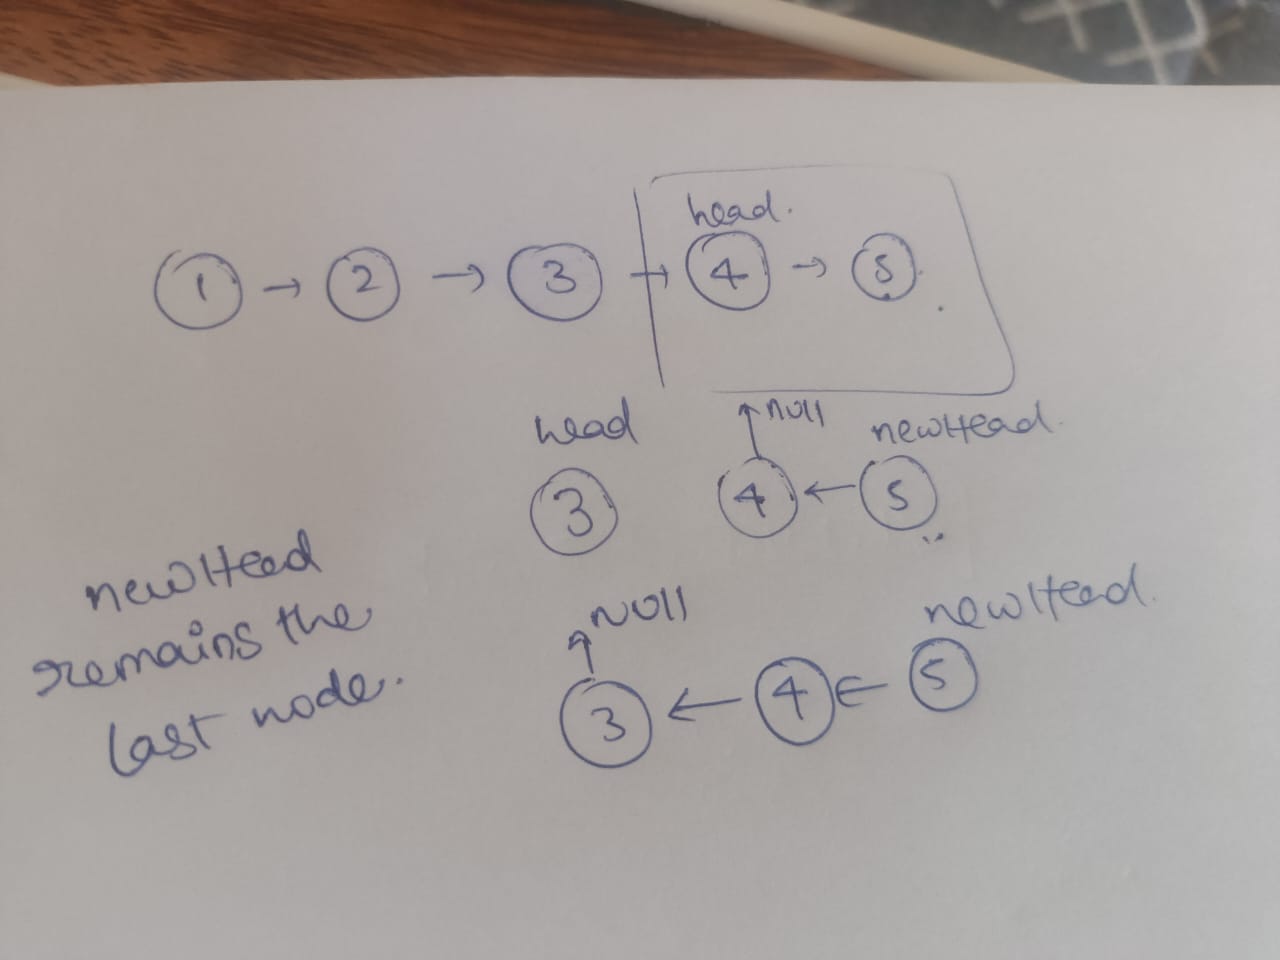 head.
1 → 2 → 3 → 4 → 5
head
null
newHead.
3 4 ← 5
newHead
remains the
last node.
NUll
newHead.
3 ← 4 ← 5